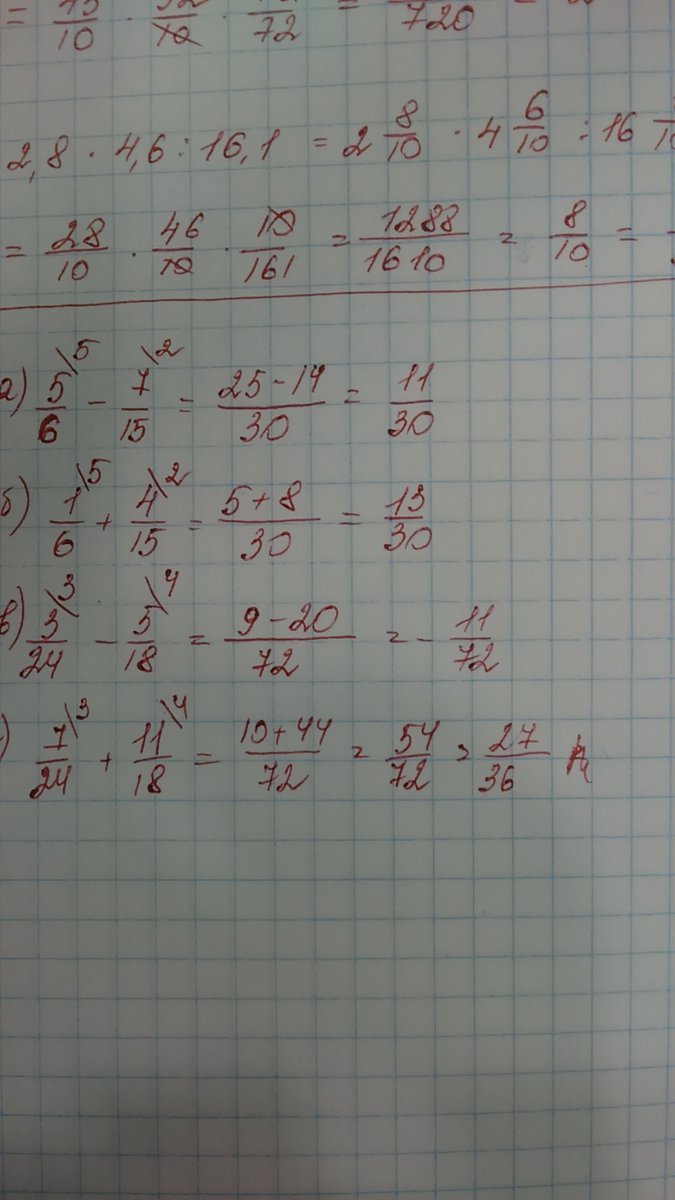 = 15/10 · 32/10 · /72 = /720 =
2,8 · 4,6 : 16,1 = 2 8/10 · 4 6/10 : 16
= 28/10 · 46/10 · 10/161 = 1288/1610 = 8/10 =
а) 5\5/6 − 7\2/15 = 25−14/30 = 11/30
б) 1\5/6 + 4\2/15 = 5+8/30 = 13/30
в) 3\3/24 − 5\4/18 = 9−20/72 = − 11/72
) 7\3/24 + 11\4/18 = 10+44/72 = 54/72 = 27/36